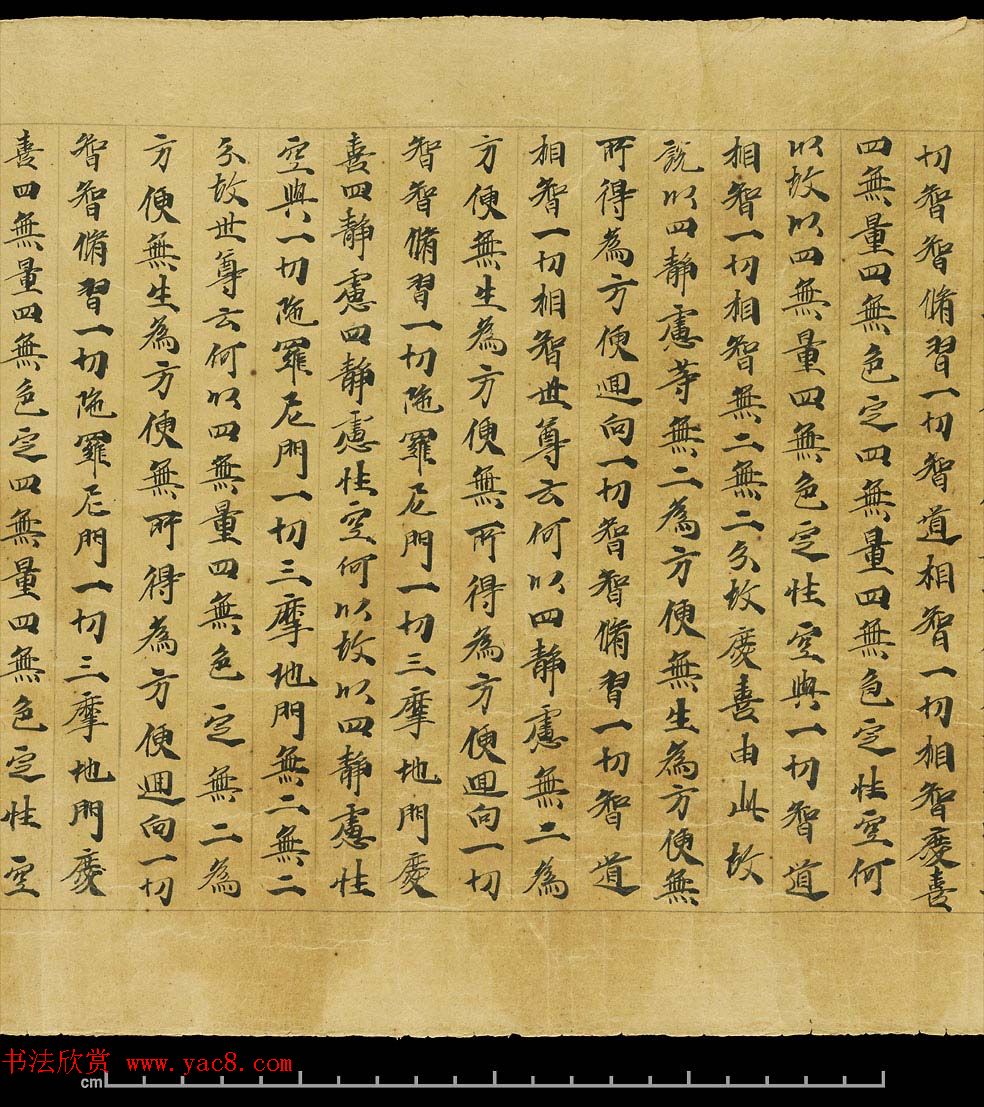 切智智脩習一切智道相智一切相智慶喜
四無量四無色定四無量四無色定性空何
以故以四無量四無色定性空與一切智道
相智一切相智無二無二分故慶喜由此故
說以四静慮等無二為方便無生為方便無
所得為方便迴向一切智智脩習一切智道
相智一切相智世尊云何以四静慮無二為
方便無生為方便無所得為方便迴向一切
智智脩習一切陁羅尼門一切三摩地門慶
喜四静慮四静慮性空何以故以四静慮性
空與一切陁羅尼門一切三摩地門無二無二
分故世尊云何以四無量四無色定無二為
方便無生為方便無所得為方便迴向一切
智智脩習一切陁羅尼門一切三摩地門慶
喜四無量四無色定四無量四無色定性空
书法欣赏 www.yac8.com
cm